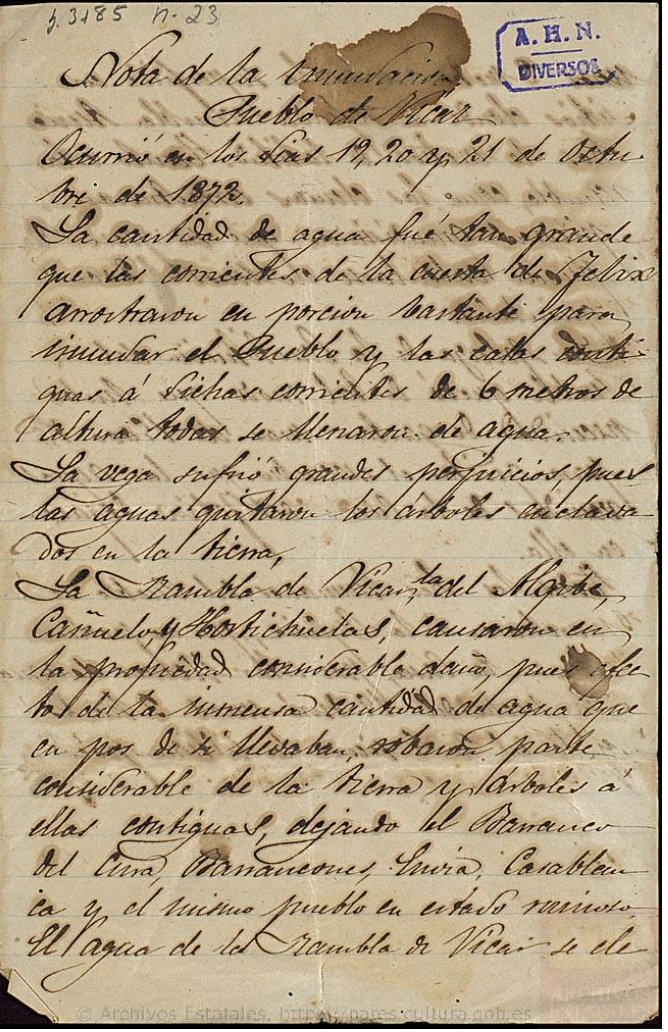 h. 3185 n. 23
A. H. N.
DIVERSOS
Nota de la innundacion
Pueblo de Vicar
Ocurrió en los dias 19, 20 y 21 de Octu-
bre de 1872.
La cantidad de agua fué tan grande
que las corrientes de la cuesta de Felix
arrostraron en porcion bastante para
inundar el Pueblo y las casas conti-
guas á dichas corrientes de 6 metros de
altura todas se llenaron de agua.
La vega sufrió grandes perjuicios, pues
las aguas quitaron los árboles enclava-
dos en la tierra,
La Rambla de Vicar, la del Algibe,
Cañuelo, y Hortichuelas, causaron en
la propiedad considerable daño, pues efec-
to de la inmensa cantidad de agua que
en pos de si llevaban, robaron parte
considerable de la tierra y arboles á
ellas contiguas, dejando el Barranco
del Cura, Barrancones, Casablan-
ca y el mismo pueblo en estado ruinoso.
El agua de la Rambla de Vicar se ele-
© Archivos Estatales, https://pares.cultura.gob.es